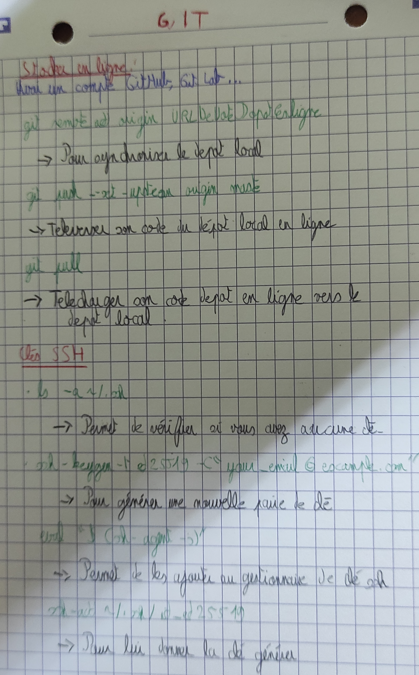 GIT
Stocker en ligne:
Avoir un compte GitHub, Git Lab...
git remote add origin URLDeVotreDepotEnligne
→ Pour synchroniser le depot local
git push --set-upstream origin
→ Televerser son code du dépot local en ligne
git pull
→ Telecharger son code depot en ligne vers le
depot local.
Clés SSH
ls -a ~/.ssh
→ Permet de vérifier si vous avez aucune clé
ssh-keygen -t ed25519 -C "your_email@example.com"
→ Pour générer une nouvelle paire de clé
eval "$(ssh-agent -s)"
→ Permet de les ajouter au gestionnaire de clé ssh
ssh-add ~/.ssh/id_ed25519
→ Pour lui donner la clé générer